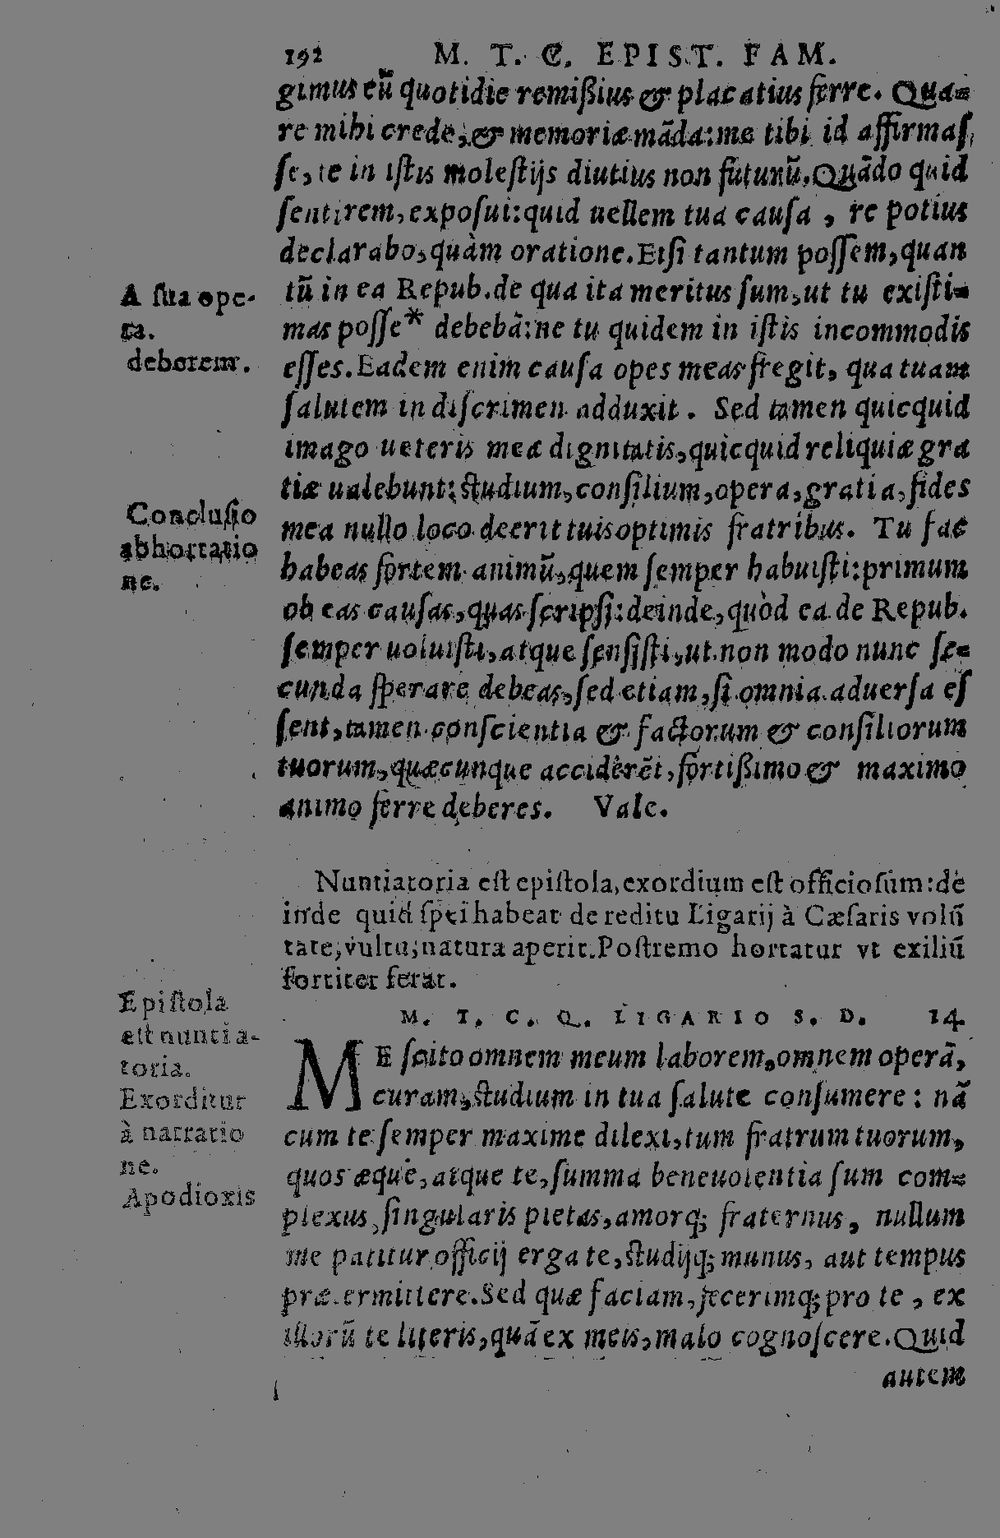 192 M. T. C. EPIST. FAM.
gimus eū quotidie remißius & placatius ferre. Qua-
re mihi crede, & memoriæ māda: me tibi id affirmas
se, te in istis molestijs diutius non futurū. Quādo quid
sentirem, exposui: quid uellem tua causa, re potius
declarabo, quàm oratione. Etsi tantum possem, quan
tū in ea Repub. de qua ita meritus sum, ut tu existi-
mas posse* debebā: ne tu quidem in istis incommodis
esses. Eadem enim causa opes meas fregit, qua tuam
salutem in discrimen adduxit. Sed tamen quicquid
imago ueteris meæ dignitatis, quicquid reliquiæ gra
tiæ ualebunt: studium, consilium, opera, gratia, fides
mea nullo loco deerit tuis optimis fratribus. Tu fac
habeas fortem animū, quem semper habuisti: primum
ob eas causas, quas scripsi: deinde, quòd ea de Repub.
semper uoluisti, atque sensisti, ut non modo nunc se-
cunda sperare debeas, sed etiam, si omnia aduersa es
sent, tamen conscientia & factorum & consiliorum
tuorum, quæcunque acciderēt, fortißimo & maximo
animo ferre deberes. Vale.
A sua ope-
ra.
deberem.
Conclusio
abhortatio
ne.
Nuntiatoria est epistola, exordium est officiosum: de
inde quid spei habeat de reditu Ligarij à Cæsaris volū
tate, vultu, natura aperit. Postremo hortatur vt exiliū
fortiter ferat.
M. T. C. Q. LIGARIO S. D. 14
ME scito omnem meum laborem, omnem operā,
curam, studium in tua salute consumere: nā
cum te semper maxime dilexi, tum fratrum tuorum,
quos æquè, atque te, summa beneuolentia sum com-
plexus, singularis pietas, amorq; fraternus, nullum
me patitur officij erga te, studijq; munus, aut tempus
prætermittere. Sed quæ faciam, fecerimq; pro te, ex
illorū te literis, quā ex meis, malo cognoscere. Quid
autem
Epistola
est nuntia-
toria.
Exorditur
à narratio
ne.
Apodioxis